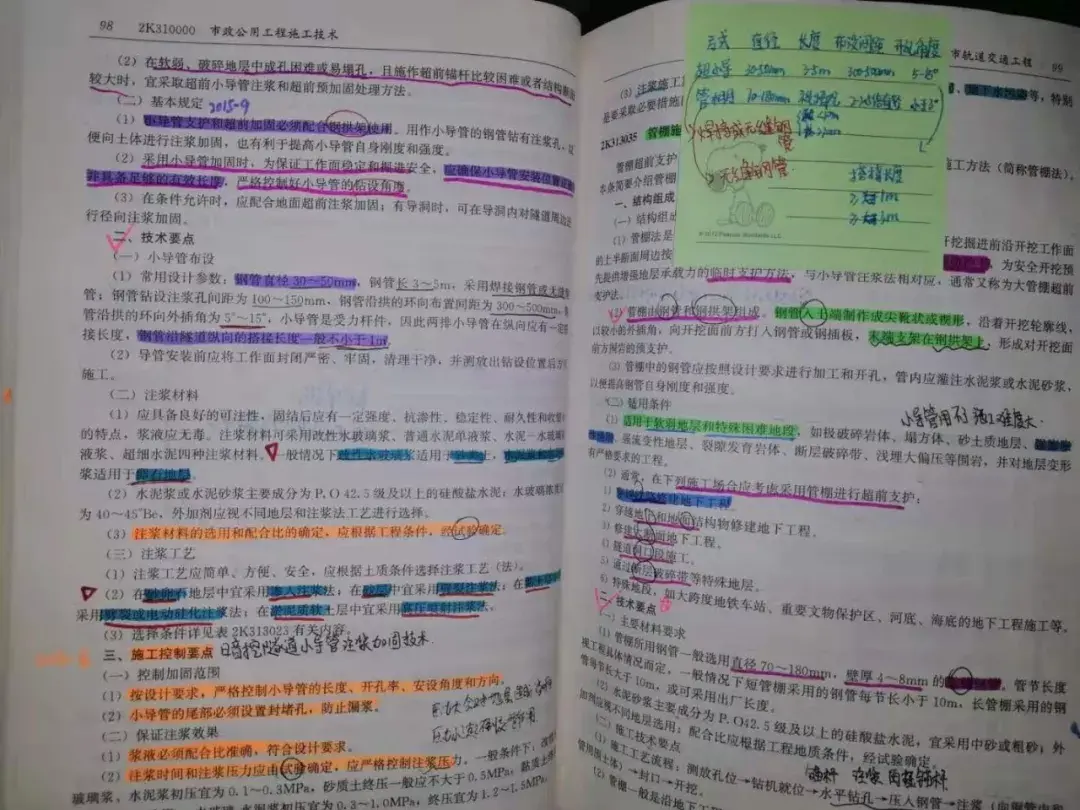 98 2K310000 市政公用工程施工技术
(2) 在软弱、破碎地层中成孔困难或易塌孔，且施作超前锚杆比较困难或者结构断面
较大时，宜采取超前小导管注浆和超前预加固处理方法。
(二) 基本规定 2015-9
(1) 小导管支护和超前加固必须配合钢拱架使用。用作小导管的钢管钻有注浆孔，以
便向土体进行注浆加固，也有利于提高小导管自身刚度和强度。
(2) 采用小导管加固时，为保证工作面稳定和掘进安全，应确保小导管安装位置正确
并具备足够的有效长度，严格控制好小导管的
(3) 在条件允许时，应配合地面超前注浆加固；有导洞时，可在导洞内对隧道周边进
行径向注浆加固。
二、技术要点
(一) 小导管布设
(1) 常用设计参数：钢管直径30～50mm，钢管长3～5m，采用焊接钢管或无缝钢
管；钢管钻设注浆孔间距为100～150mm，钢管沿拱的环向布置间距为300～500mm，钢
管沿拱的环向外插角为5°～15°，小导管是受力杆件，因此两排小导管在纵向应有一定搭
接长度，钢管沿隧道纵向的搭接长度一般不小于1m。
(2) 导管安装前应将工作面封闭严密、牢固，清理干净，并测放出钻设位置后方可
施工。
(二) 注浆材料
(1) 应具备良好的可注性，固结后应有一定强度、抗渗性、稳定性、耐久性和收缩小
的特点，浆液应无毒。注浆材料可采用改性水玻璃浆、普通水泥单液浆、水泥—水玻璃双
液浆、超细水泥四种注浆材料。一般情况下改性水玻璃浆适用于砂类土，
浆适用于卵石地层。
(2) 水泥浆或水泥砂浆主要成分为P.O 42.5级及以上的硅酸盐水泥；水玻璃浓度应
为40～45°Be，外加剂应视不同地层和注浆法工艺进行选择。
(3) 注浆材料的选用和配合比的确定，应根据工程条件，经试验确定。
(三) 注浆工艺
(1) 注浆工艺应简单、方便、安全，应根据土质条件选择注浆工艺（法）。
(2) 在砂卵石地层中宜采用渗入注浆法；在砂层中宜采用劈裂注浆法；在黏土层中宜
采用劈裂或电动硅化注浆法；在淤泥质软土层中宜采用高压喷射注浆法。
(3) 选择条件详见表2K313023有关内容。
三、施工控制要点 暗挖隧道小导管注浆加固技术
(一) 控制加固范围
(1) 按设计要求，严格控制小导管的长度、开孔率、安设角度和方向。
(2) 小导管的尾部必须设置封堵孔，防止漏浆。
(二) 保证注浆效果
(1) 浆液必须配合比准确，符合设计要求。
(2) 注浆时间和注浆压力应由试验确定，应严格控制注浆压力。一般条件下：改性水
玻璃浆、水泥浆初压宜为0.1～0.3MPa，砂质土终压一般应不大于0.5MPa，黏质土终
初压宜为0.3～1.0MPa，终压宜为1.2～1.5MPa
市轨道交通工程 99
方式 直径 长度 布设间距 外插角度
超小导 30-50mm 3-5m 300-500mm 5-15°
管棚 70-180mm
焊接或无缝钢管
无缝钢管
搭接长度
(3) 注浆施工
是要采取必要措施
等，特别
2K313035 管棚施
工方法（简称管棚法）。
管棚超前支护
本条简要介绍管棚
一、结构组成
(一) 结构组成
(1) 管棚法是
开挖掘进前沿开挖工作面
的上半断面周边
，为安全开挖预
先提供增强地层承载力的临时支护方法，与小导管注浆法相对应，通常又称为大管棚超前
支护法。
(2) 管棚由钢管和钢拱架组成。钢管入土端制作成尖靴状或楔形，沿着开挖轮廓线，
以较小的外插角，向开挖面前方打入钢管或钢插板，末端支架在钢拱架上，形成对开挖面
前方围岩的预支护。
(3) 管棚中的钢管应按照设计要求进行加工和开孔，管内应灌注水泥浆或水泥砂浆，
以便提高钢管自身刚度和强度。
(二) 适用条件 小导管用不 施工难度大.
(1) 适用于软弱地层和特殊困难地段，如极破碎岩体、塌方体、砂土质地层、
、强流变性地层、裂隙发育岩体、断层破碎带、浅埋大偏压等围岩，并对地层变形
有严格要求的工程。
(2) 通常，在下列施工场合应考虑采用管棚进行超前支护：
1) 穿越铁路修建地下工程
2) 穿越地下和地面结构物修建地下工程。
3) 修建大断面地下工程。
4) 隧道洞口段施工。
5) 通过断层破碎带等特殊地层。
6) 特殊地段，如大跨度地铁车站、重要文物保护区、河底、海底的地下工程施工等。
二、技术要点
(一) 主要材料要求
(1) 管棚所用钢管一般选用直径70～180mm，壁厚4～8mm的无缝钢管。管节长度
视工程具体情况而定，一般情况下短管棚采用的钢管每节长小于10m，长管棚采用的钢
管每节长大于10m，或可采用出厂长度。
(2) 水泥砂浆主要成分为P.O42.5级及以上的硅酸盐水泥，宜采用中砂或粗砂；外
加剂应视不同地层选用；配合比应根据工程地质条件，经试验确定。
(二) 施工技术要点
(1) 施工工艺流程：测放孔位→钻机就位→水平钻孔→压入钢管→注浆（向钢管内或
管周围土体）→封口→开挖。
(2) 管棚一般是沿地下工程